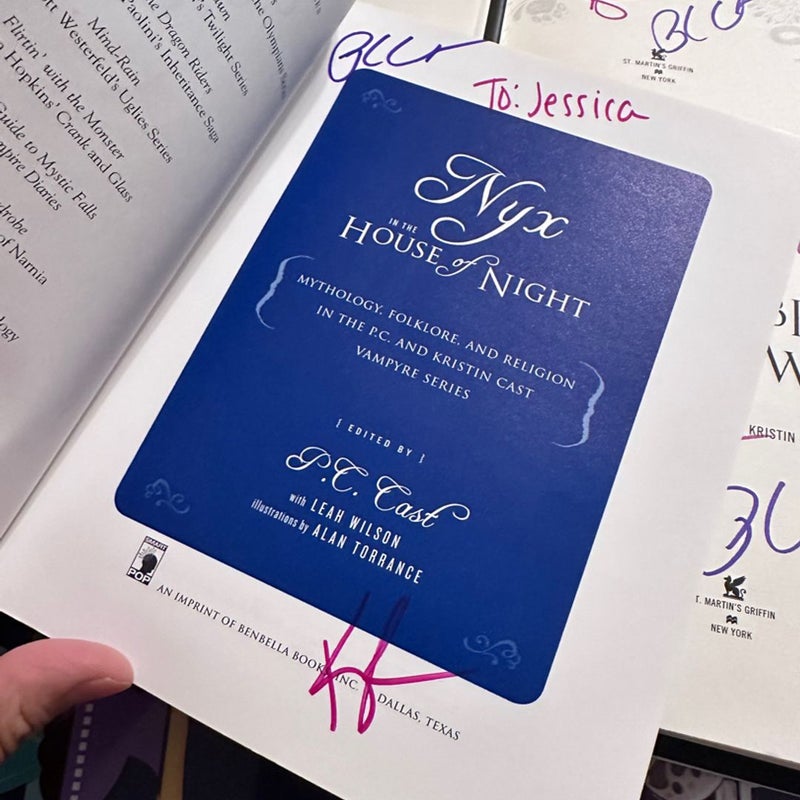 own
Mind-Rain
the Dragon Riders
Paolini's Inheritance Saga
's Twilight Series
the Olympians Series
Flirtin' with the Monster
Hopkins' Crank and Glass
Westerfeld's Uglies Series
Guide to Mystic Falls
Vampire Diaries
of Narnia
To: Jessica
Nyx
IN THE
HOUSE of NIGHT
MYTHOLOGY, FOLKLORE, AND RELIGION
IN THE P.C. AND KRISTIN CAST
VAMPYRE SERIES
{ EDITED BY }
P.C. Cast
with LEAH WILSON
illustrations by ALAN TORRANCE
SMART
POP
AN IMPRINT OF BENBELLA BOOKS, INC. DALLAS, TEXAS
ST. MARTIN'S GRIFFIN
NEW YORK
KRISTIN
T. MARTIN'S GRIFFIN
NEW YORK